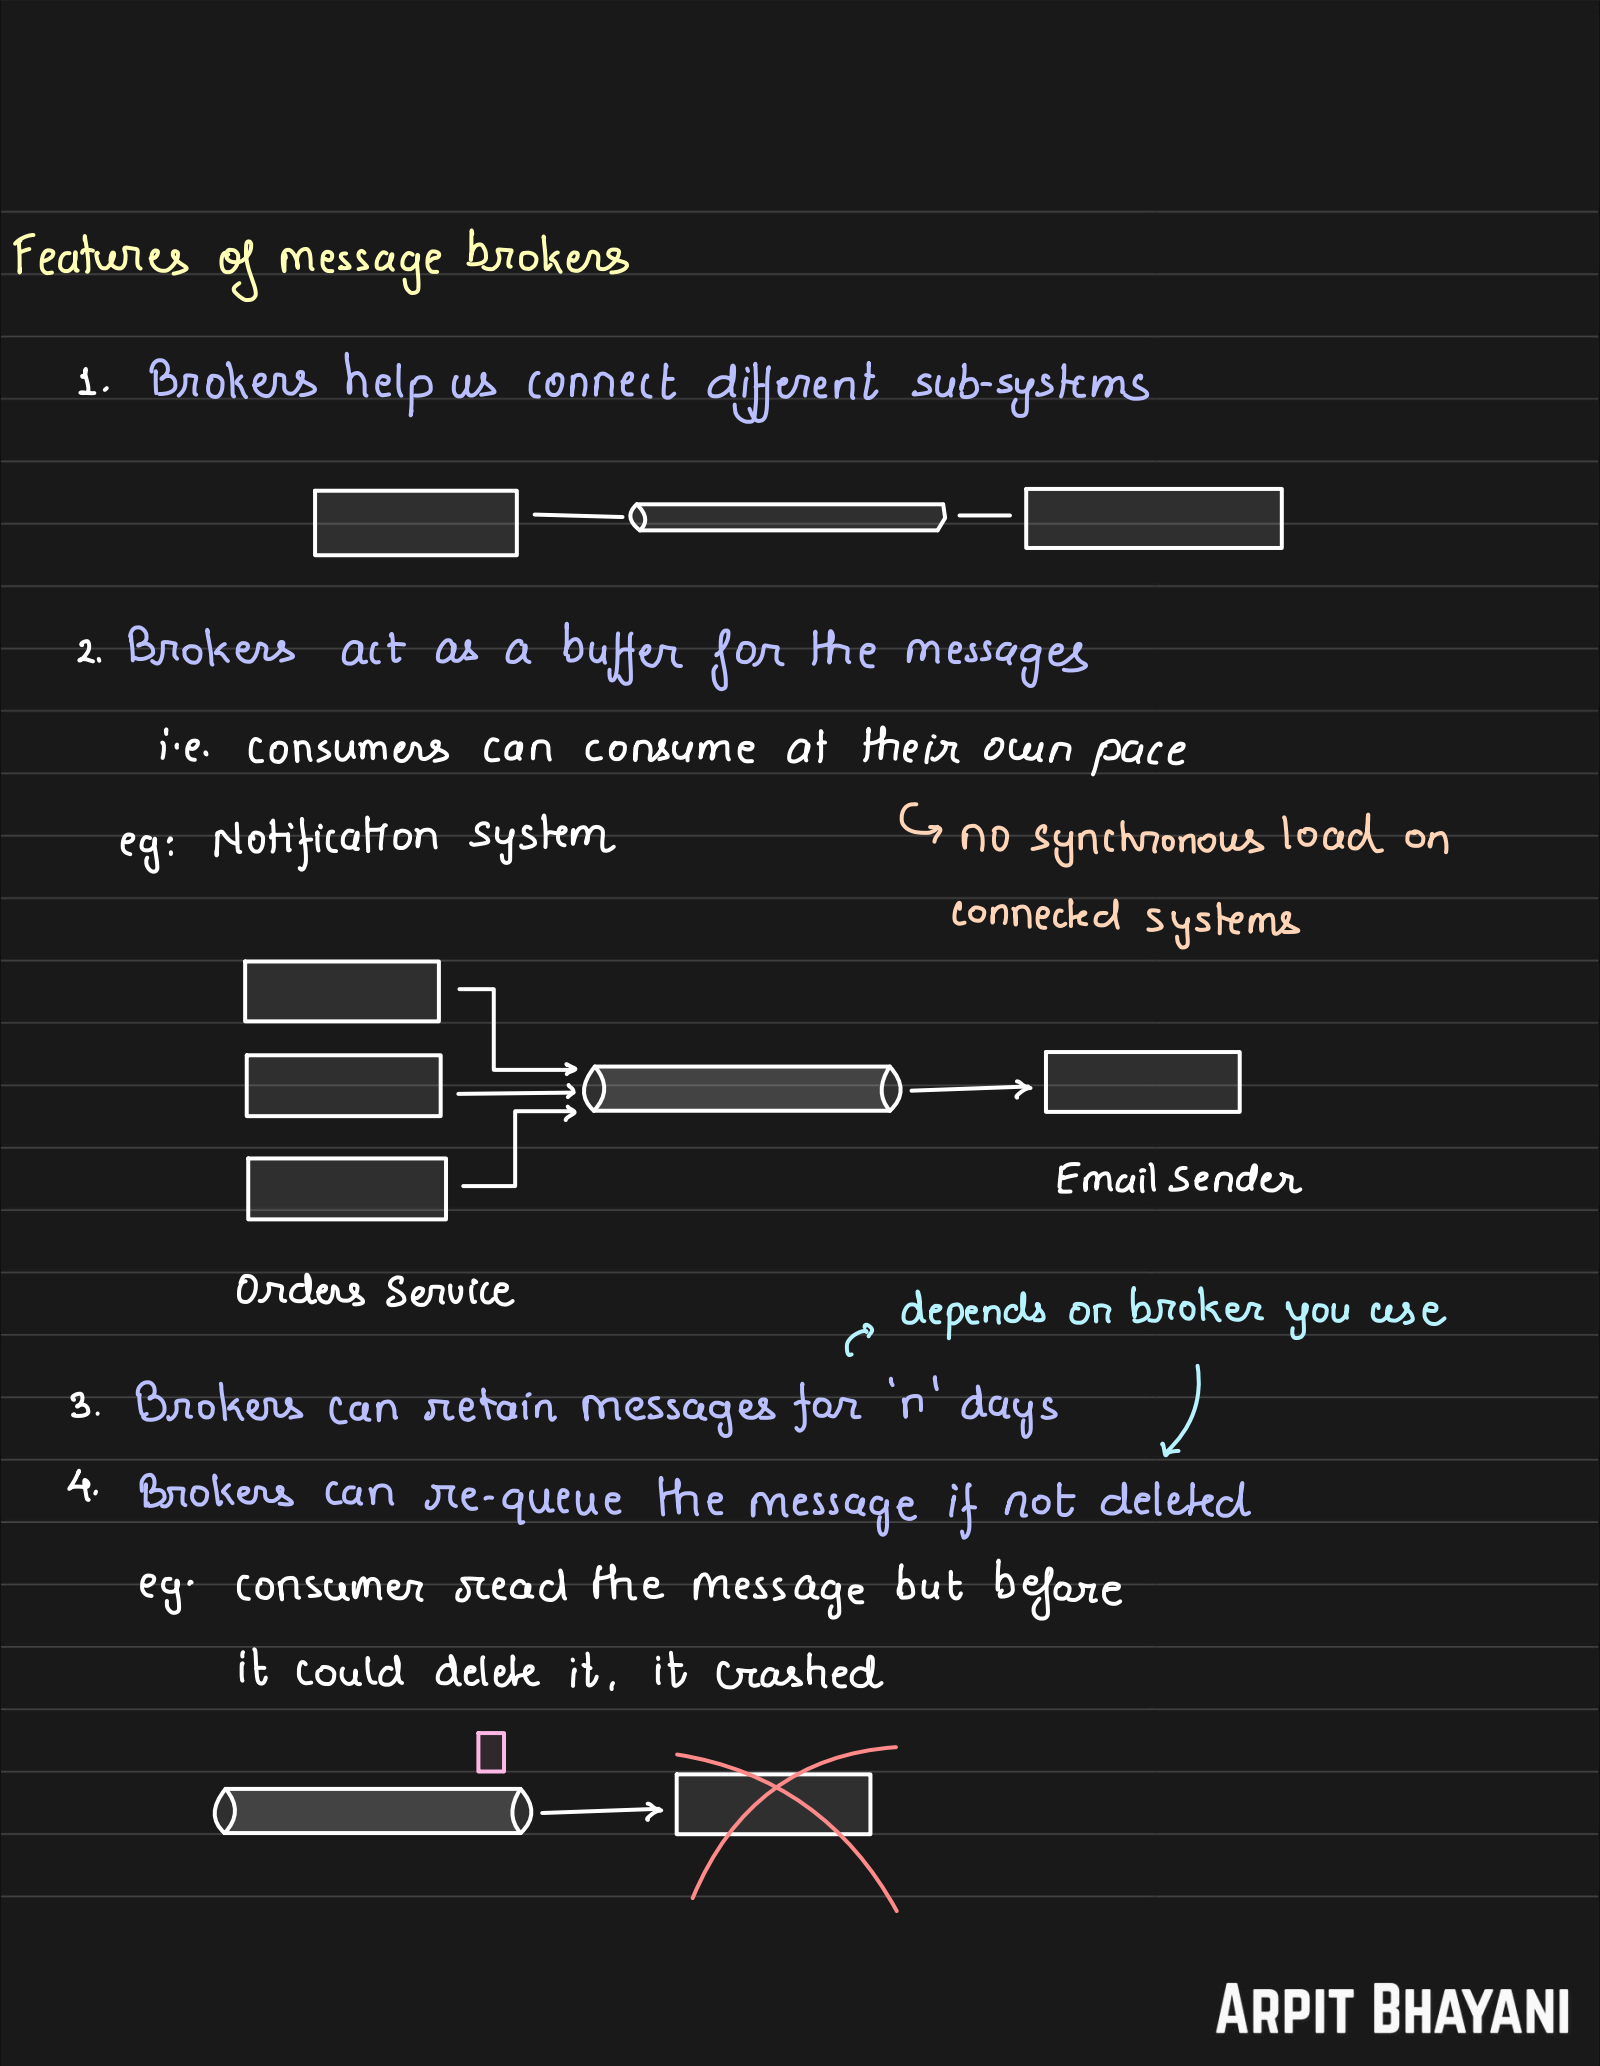 Features of message brokers
1. Brokers help us connect different sub-systems
2. Brokers act as a buffer for the messages
i.e. consumers can consume at their own pace
eg: Notification system
↳ no synchronous load on
connected systems
Email Sender
Orders Service
depends on broker you use
3. Brokers can retain messages for 'n' days
4. Brokers can re-queue the message if not deleted
eg. consumer read the message but before
it could delete it, it crashed
ARPIT BHAYANI